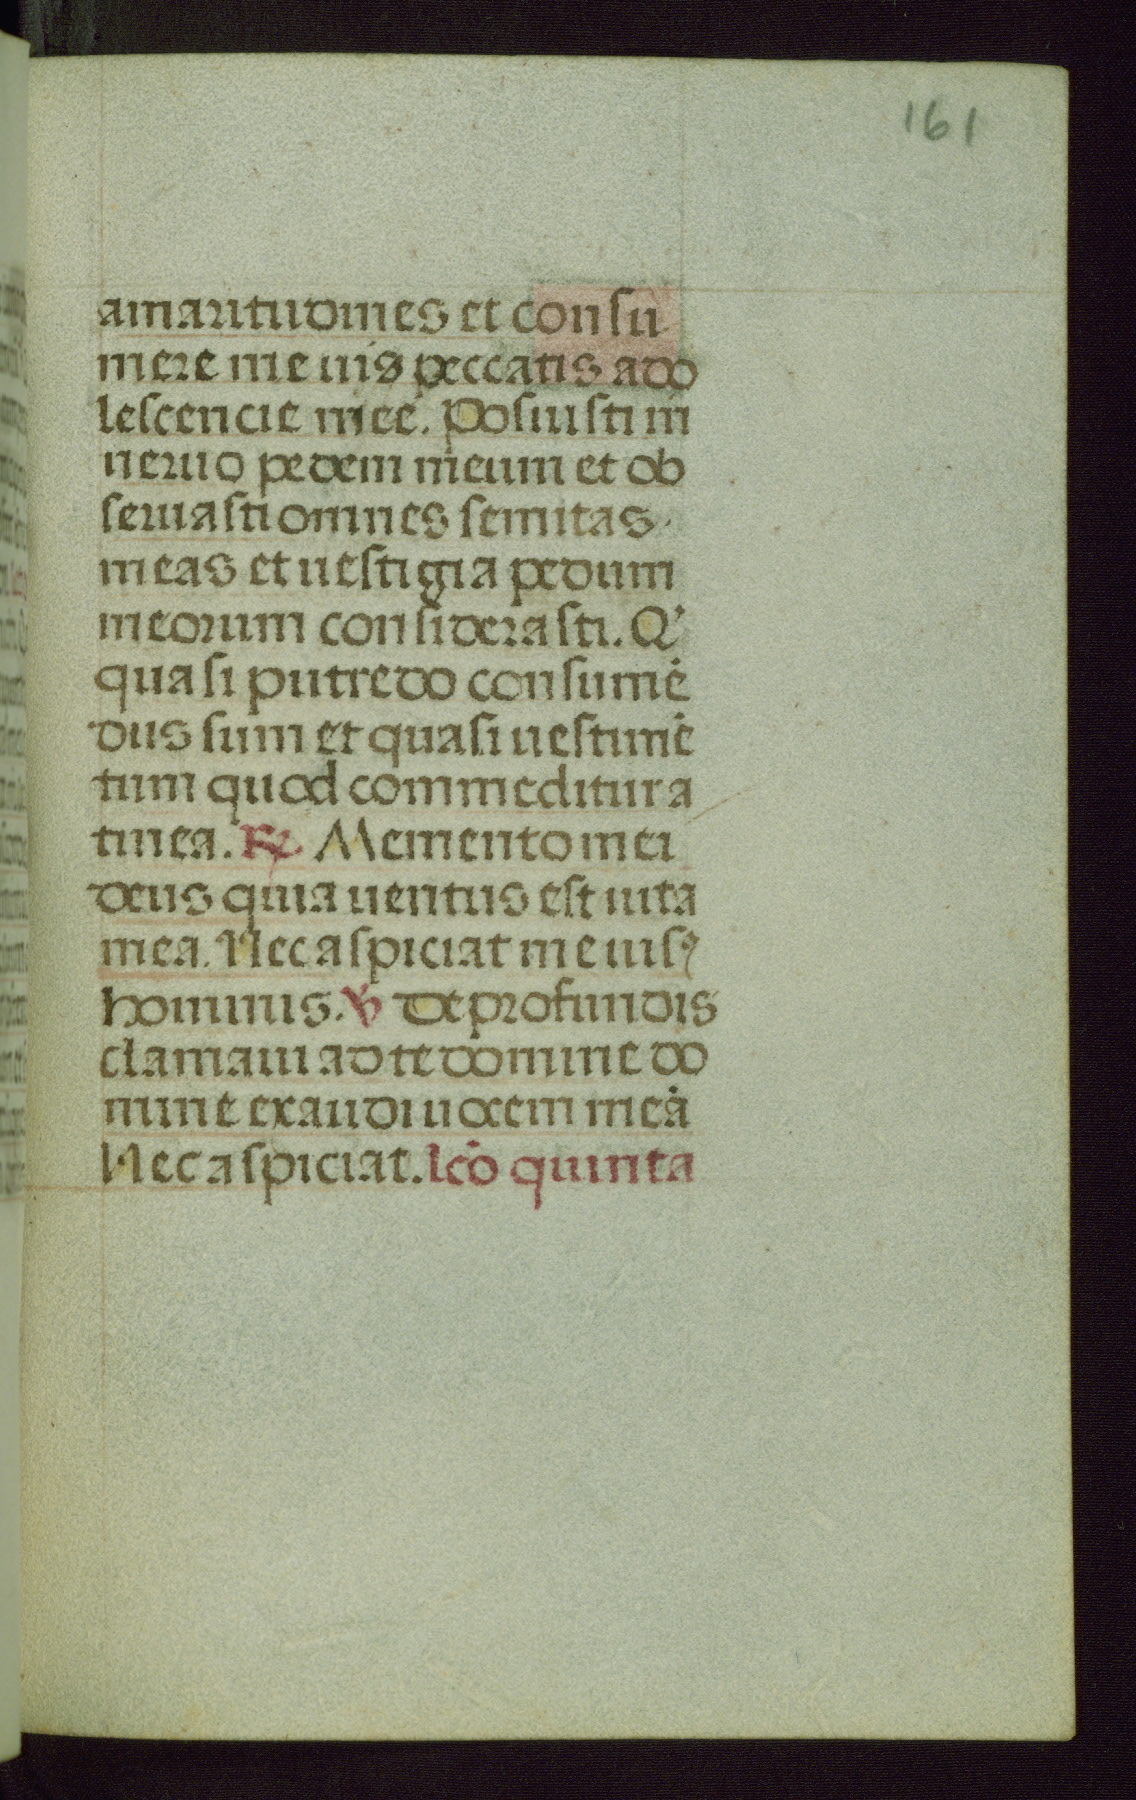 161
amaritudines et consu
mere me uis peccatis ado
lescencie mee. Posuisti in
neruo pedem meum et ob
seruasti omnes semitas
meas et uestigia pedum
meorum considerasti. Q'
quasi putredo consumē
dus sum et quasi uestimē
tum quod commeditur a
tinea. ℟ Memento mei
deus quia uentus est uita
mea. Nec aspiciat me uisꝰ
hominis. ℣ De profundis
clamaui ad te domine do
mine exaudi uocem meā
Nec aspiciat. lcō quinta